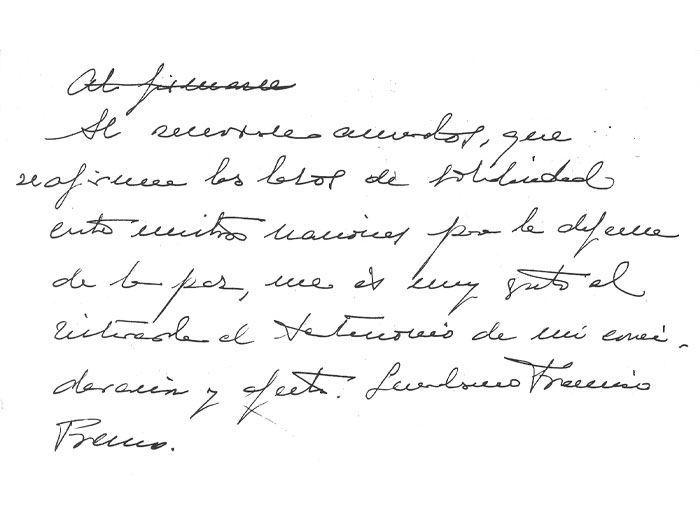 Al firmarse
Al renovarse acuerdos, que
reafirman los lazos de solidaridad
entre nuestras naciones para la defensa
de la paz, me es muy grato el
reiterarle el testimonio de mi consi-
deración y afecto. Francisco
Franco.